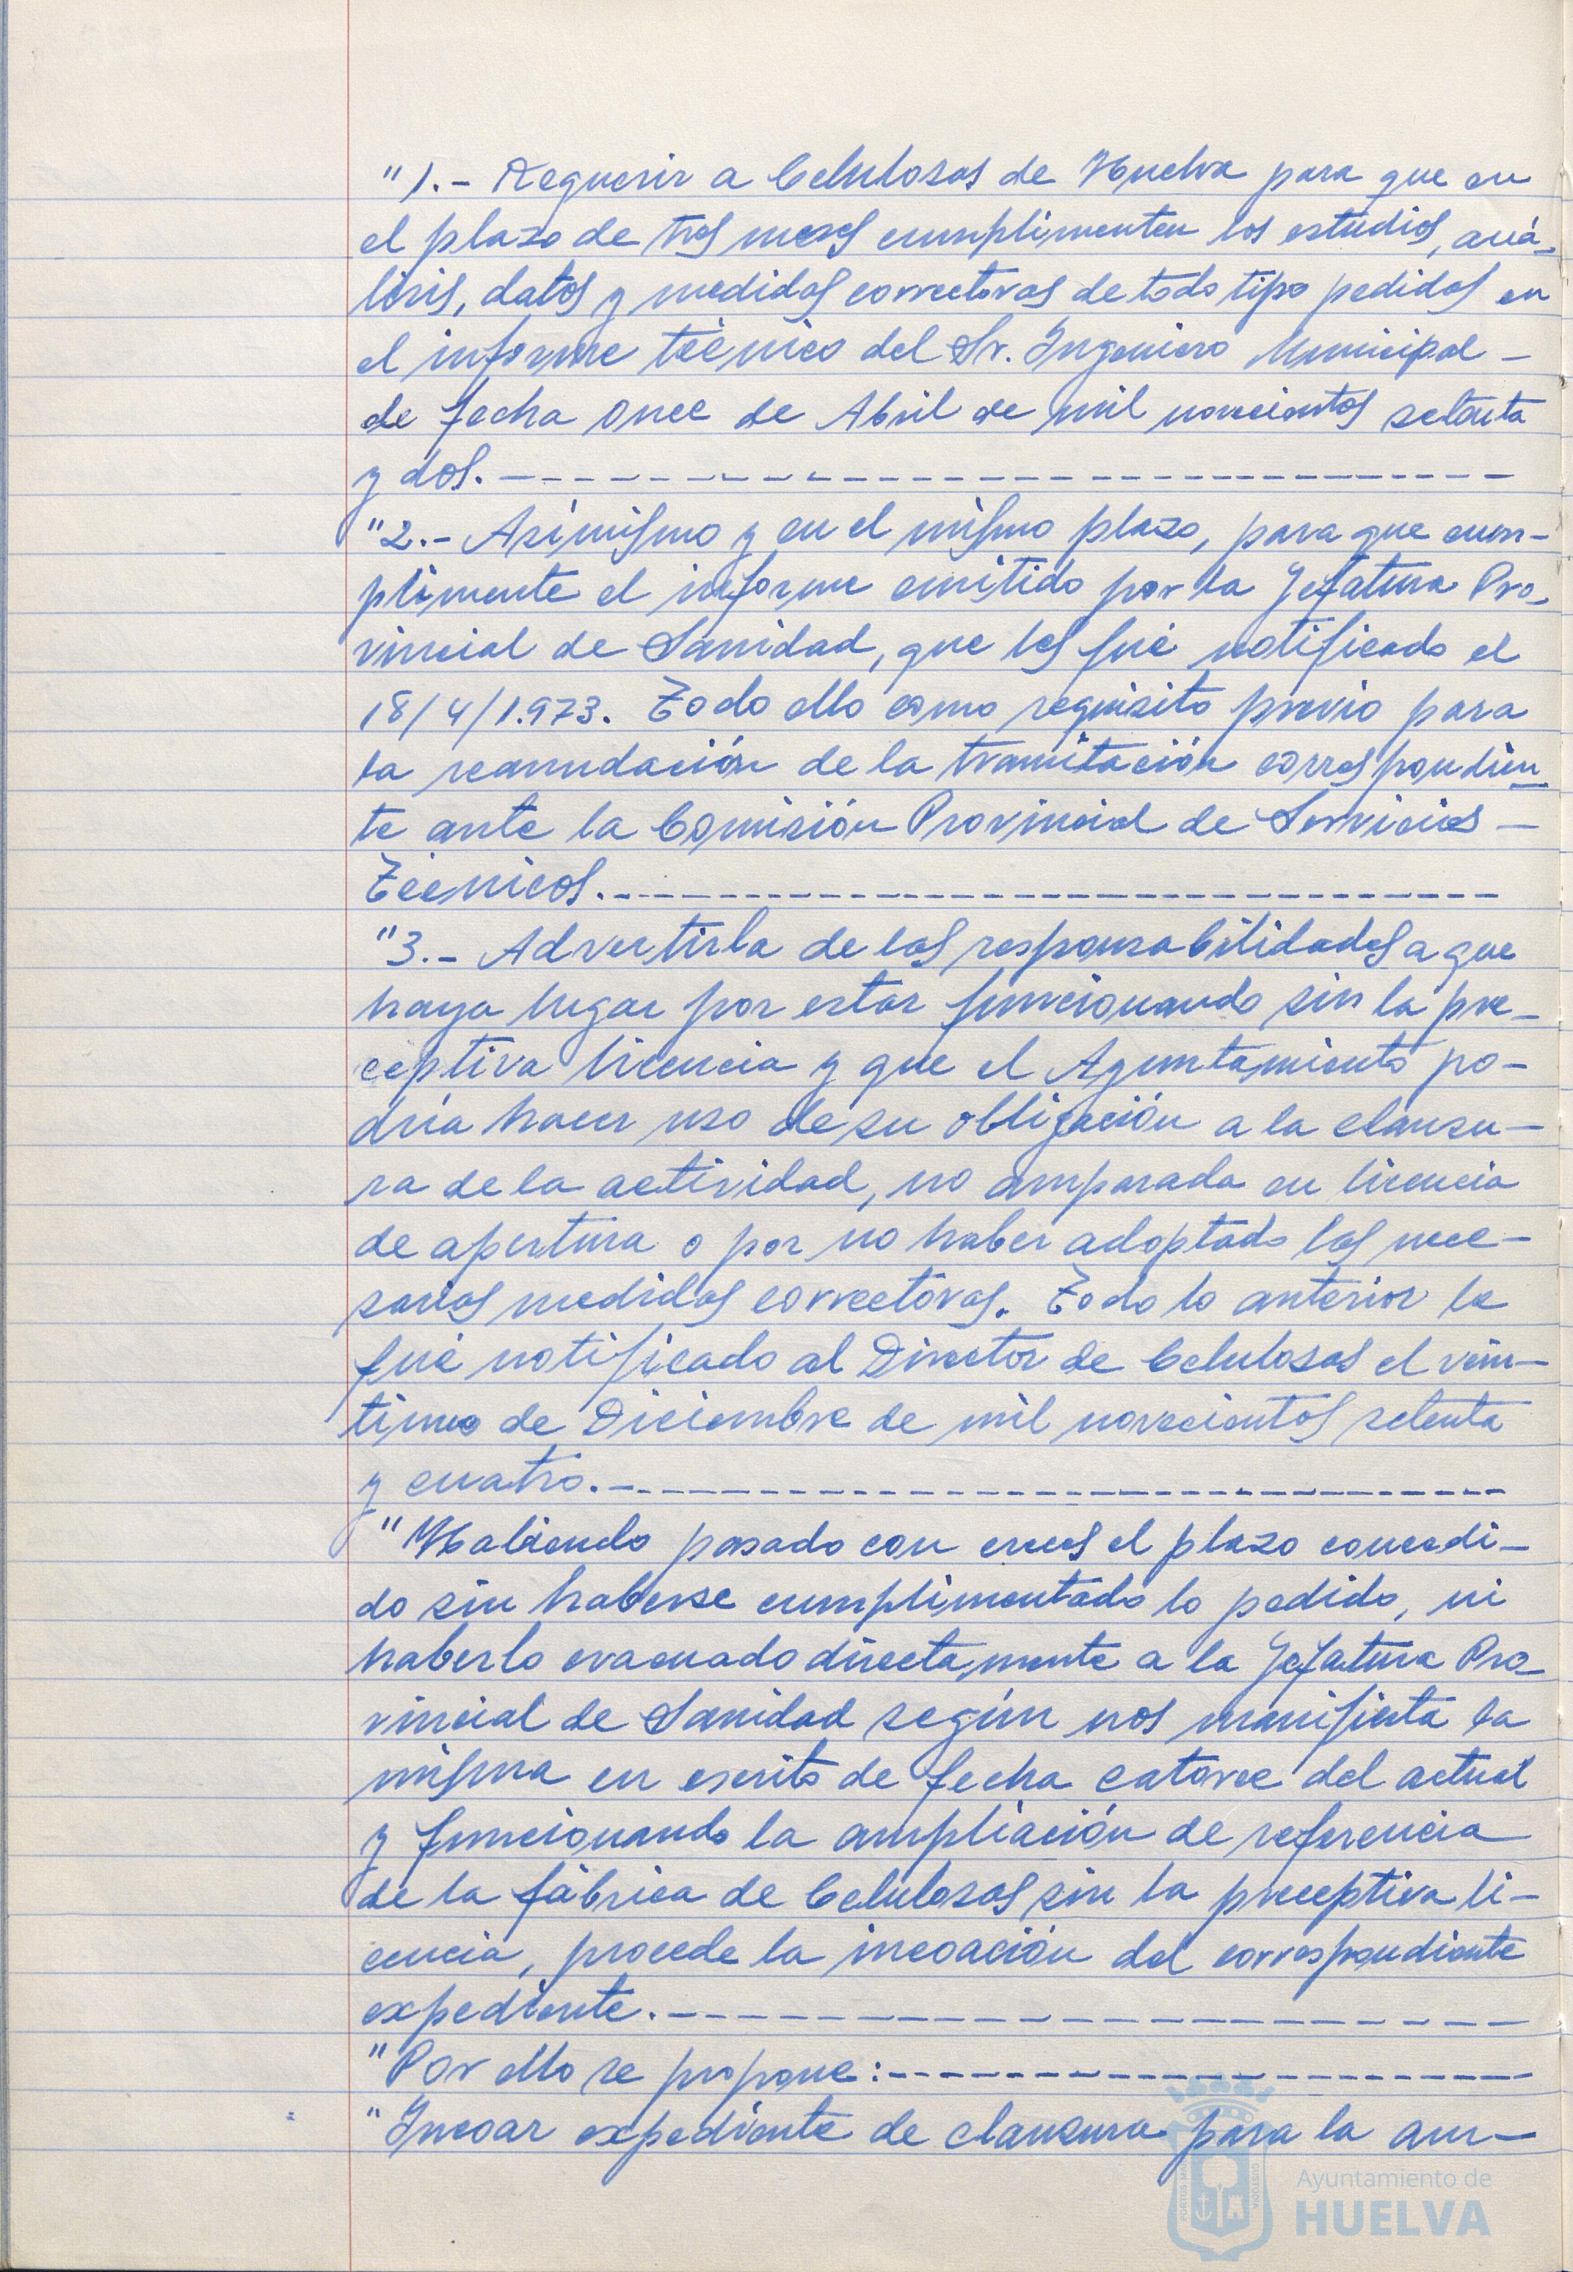 "1.- Requerir a Celulosas de Huelva para que en
el plazo de tres meses cumplimenten los estudios, aná-
lisis, datos y medidas correctoras de todo tipo pedidos en
el informe técnico del Sr. Ingeniero Municipal -
de fecha once de Abril de mil novecientos setenta
y dos.- - - - - - - - - - - - - - - - - - - - - - - - -
"2.- Asímismo y en el mismo plazo, para que cum-
plimente el informe emitido por la Jefatura Pro-
vincial de Sanidad, que les fué notificado el
18/4/1.973. Todo ello como requisito previo para
la reanudación de la tramitación correspondien
te ante la Comisión Provincial de Servicios -
Técnicos.- - - - - - - - - - - - - - - - - - - - - - -
"3.- Advertirla de las responsabilidades a que
haya lugar por estar funcionando sin la pre-
ceptiva licencia y que el Ayuntamiento po-
dría hacer uso de su obligación a la clausu-
ra de la actividad, no amparada en licencia
de apertura o por no haber adoptado las nece-
sarias medidas correctoras. Todo lo anterior le
fué notificado al Director de Celulosas el vein-
tiuno de Diciembre de mil novecientos setenta
y cuatro.- - - - - - - - - - - - - - - - - - - - - - -
"Habiendo pasado con creces el plazo concedi-
do sin haberse cumplimentado lo pedido, ni
haberlo evacuado directamente a la Jefatura Pro-
vincial de Sanidad según nos manifiesta la
misma en escrito de fecha catorce del actual
y funcionando la ampliación de referencia
de la fábrica de Celulosas sin la preceptiva li-
cencia, procede la incoación del correspondiente
expediente.- - - - - - - - - - - - - - - - - - - - -
"Por ello se propone:- - - - - - - - - - - - - - - -
"Incoar expediente de clausura para la am-
PORTUS MARIS
CUSTODIA
Ayuntamiento de
HUELVA